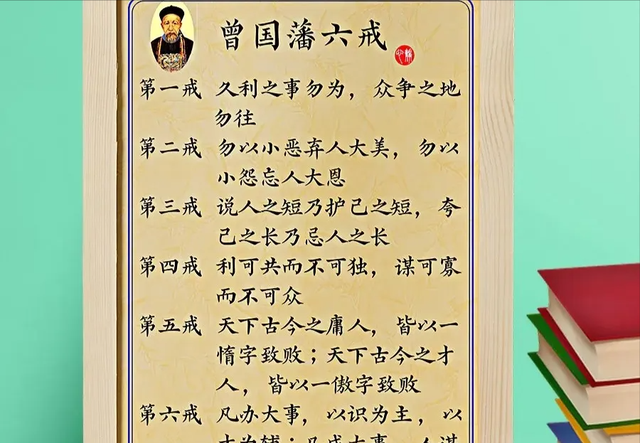 曾国藩六戒
第一戒 久利之事勿为，众争之地
勿往
第二戒 勿以小恶弃人大美，勿以
小怨忘人大恩
第三戒 说人之短乃护己之短，夸
己之长乃忌人之长
第四戒 利可共而不可独，谋可寡
而不可众
第五戒 天下古今之庸人，皆以一
惰字致败；天下古今之才
人，皆以一傲字致败
第六戒 凡办大事，以识为主，以
才为辅；凡成大事，人谋